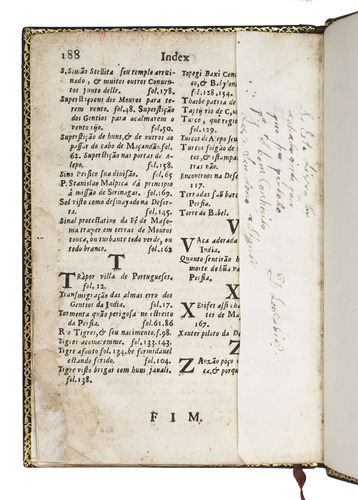 188 Index
S. Simão Stellita seu templo arrui-
nado, & muitos outros Conven-
tos junto delle. fol.178.
Superstiçoens dos Mouros para te-
rem vento. fol.48. Superstição
dos Gentios para acalmarem o
vento rijo. fol.50.
Superstição de huns, & de outros ao
passar do cabo de Maçandão. fol.
62. Superstição nas portas de
Alepo. fol.158.
Sino Persico sua divisão. fol.65
P. Stanislao Malpica dá principio
à missão de Sirinagar. fol.169.
Sol visto como desmayado na Deser-
ta. fol.145.
Sinal protestativo da Fè de Mafo-
ma trazer em terras de Mouros
touca, ou turbante todo verde, ou
todo branco. fol.162
T
TRàpor villa de Portugueses.
fol.12.
Transmigração das almas erro dos
Gentios da India. fol.17.
Tormenta quãto perigosa no estreito
da Persia. fol.61.86
Rio Tigres, & seu nacimento. f.98.
Tigres acometemme. fol.133.143.
Tigre afouto fol.134. he formidavel
estando ferido. fol.104.
Tigre visto brigar com hum javali.
fol.138.
Topegi Baxi Cons
c, & Babylon
fol.128.154.
Thasbe patria de
Tarso, de Cilicia
Turco, que regia
fol.129.
Turcos de Aepo seu
Turcos folgão de
tos, & estampas
tras não.
Encontros na Deser
117.
Terradas saõ barc
Persia.
Torre de Babel.
V
VAca adorada
India.
Quanto sentirão
morte de hũa pa
Persia.
X
XErifes assi cha
tes de Ma
167.
Xauter piloto da D
Z
ZAnzão poço
ta, & porqu
FIM.